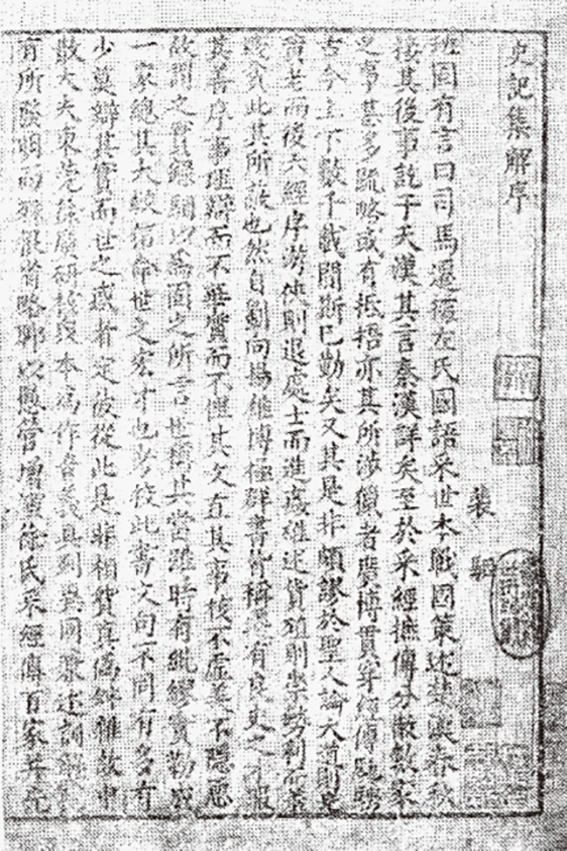 史記集解序
裴駰
班固有言曰司馬遷據左氏國語采世本戰國策述楚漢春秋
接其後事訖于天漢其言秦漢詳矣至於采經摭傳分散數家
之事甚多疏略或有抵捂亦其所涉獵者廣博貫穿經傳馳騁
古今上下數千載閒斯已勤矣又其是非頗謬於聖人論大道則先
黃老而後六經序游俠則退處士而進姦雄述貨殖則崇勢利而羞
賤貧此其所蔽也然自劉向揚雄博極群書皆稱遷有良史之才服
其善序事理辯而不華質而不俚其文直其事核不虛美不隱惡
故謂之實錄駰以為固之所言世稱其當雖時有紕繆實勒成
一家總其大較信命世之宏才也考校此書文句不同有多有
少莫辯其實而世之惑者定彼從此是非相貿真偽舛雜故中
散大夫東莞徐廣研核眾本為作音義具列異同兼述訓解
有所發明而殊恨省略聊以愚管增演徐氏采經傳百家并先